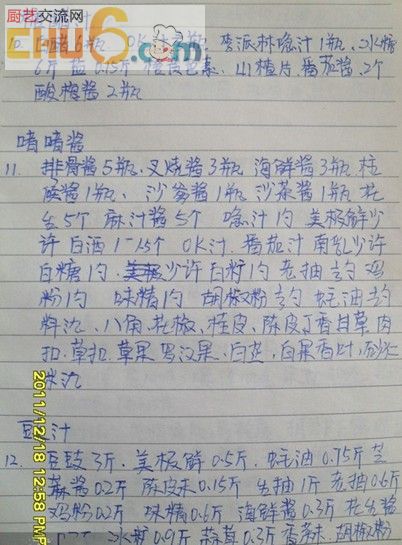 厨艺交流网
Chu6.com
10. 白醋6瓶 OK汁 李派林喼汁1瓶、冰糖
6斤 盐0.15斤 山楂片、番茄酱、2个
酸梅酱2瓶
啫啫酱
11. 排骨酱5瓶、叉烧酱3瓶 海鲜酱3瓶 柱
侯酱1瓶、沙爹酱1瓶 沙茶酱1瓶 花
生5个 麻汁酱5个 喼汁1勺 美极鲜少
许 白酒1~1.5个 OK汁、番茄汁 南乳少许
白糖1勺 少许 白糖1勺 老抽 鸡
粉1勺 味精1勺 胡椒粉 蚝油
料汆、八角、花椒、桂皮、陈皮 丁香 甘草 肉
扣、草扣、草果 罗汉果、白芷、白果 香叶
豉汁
12. 豆豉3斤、美极鲜0.5斤、蚝油0.75斤 芝
麻酱0.2斤 陈皮末0.15斤 生抽1斤 老抽0.6斤
鸡粉0.2斤 味精0.6斤 海鲜酱0.3斤 花生酱
冰糖0.9斤 蒜茸0.3斤 香菜、胡椒粉
2011/12/18 12:58 PM